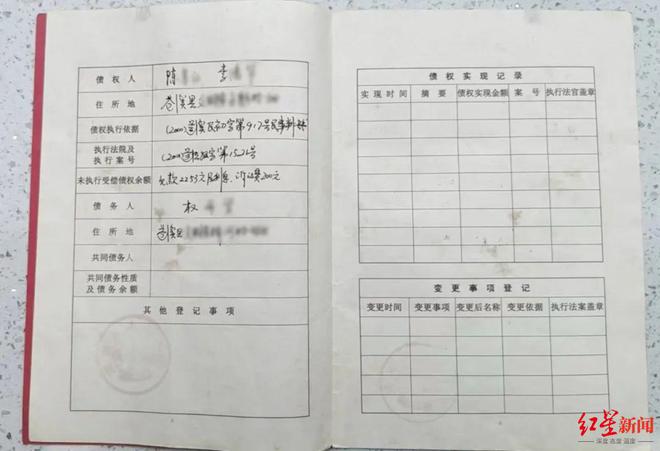 债权人 隋 李
住所地 苍溪县
债权执行依据 (2000)苍溪民初字第917号民事判决
执行法院及执行案号 字第1526号
未执行受偿债权余额 欠款2253元及利息、诉讼费200元
债务人 权
住所地 苍溪县
共同债务人
共同债务性质及债务余额
其他登记事项
债权实现记录
实现时间 摘要 债权实现金额 案号 执行法官盖章
变更事项登记
变更时间 变更事项 变更后名称 变更依据 执行法案盖章
红星新闻
深度 态度 温度